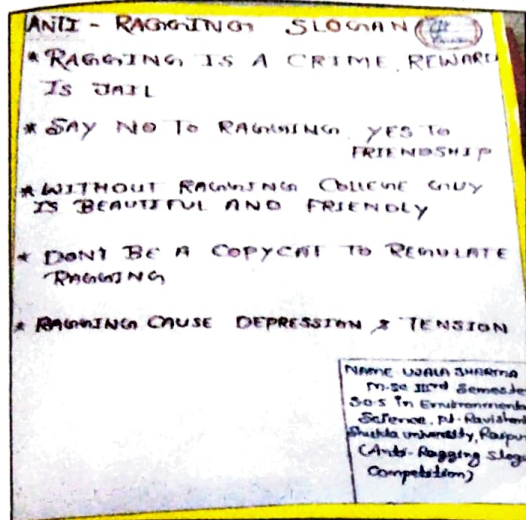 ANTI - RAGGING SLOGAN
* RAGGING IS A CRIME REWARD
IS JAIL
* SAY NO TO RAGGING YES TO
FRIENDSHIP
* WITHOUT RAGGING COLLEGE GUY
IS BEAUTIFUL AND FRIENDLY
* DON'T BE A COPYCAT TO REGULATE
RAGGING
* RAGGING CAUSE DEPRESSION & TENSION
NAME UJALA SHARMA
M.Sc IIIrd Semester
S.O.S in Environmental
Science, Pt. Ravishankar
Shukla university, Raipur
(Anti-Ragging Slogan
Competition)